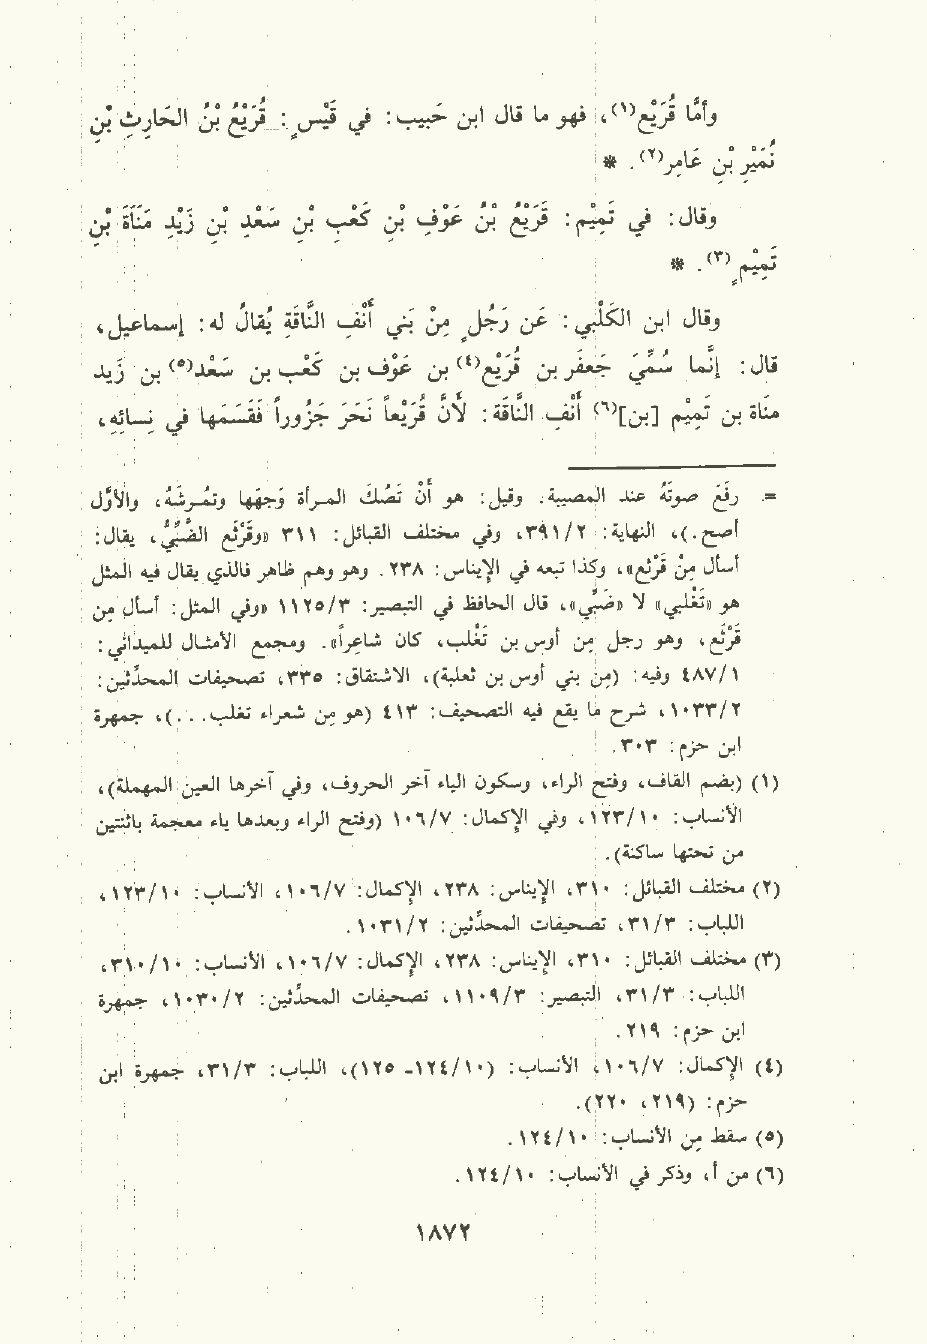 وأمَّا قُرَيْع(١)، فهو ما قال ابن حَبيب: في قَيْسٍ: قُرَيْعُ بْنُ الحَارِثِ بْنِ
نُمَيْرِ بْنِ عَامِر(٢). *
وقال: في تَمِيْم: قُرَيْعُ بْنُ عَوْفِ بْنِ كَعْبِ بْنِ سَعْدِ بْنِ زَيْدِ مَنَاَةَ بْنِ
تَمِيْمٍ(٣). *
وقال ابن الكَلْبي: عَن رَجُلٍ مِنْ بَني أَنْفِ النَّاقَةِ يُقالُ له: إسماعيل،
قال: إنَّما سُمِّيَ جَعفَر بن قُرَيْع(٤) بن عَوْف بن كَعْب بن سَعْد(٥) بن زَيد
مَناة بن تَمِيْم [بن](٦) أَنْفِ النَّاقَة: لأَنَّ قُرَيْعاً نَحَرَ جَزُوراً فَقَسَمَها في نِسائِهِ،
= رفَعَ صوتَهُ عند المصيبة. وقيل: هو أَنْ تَصُكَ المرأة وَجهَها وتمُرشَهُ، والأوَّل
أصح.)، النهاية: ٣٩١/٢، وفي مختلف القبائل: ٣١١ «وقَرْثَع الضَّبِّيُّ، يقال:
أسأل مِنْ قَرْثع»، وكذا تبعه في الإيناس: ٢٣٨. وهو وهم ظاهر فالذي يقال فيه المثل
هو «تَغْلبي» لا «ضَبِّي»، قال الحافظ في التبصير: ١١٢٥/٣ «وفي المثل: أسأل مِن
قَرْثَع، وهو رجل مِن أوس بن تَغْلب، كان شاعِراً». ومجمع الأمثال للميداني:
٤٨٧/١ وفيه: (مِن بني أوس بن ثعلبة)، الاشتقاق: ٣٣٥، تصحيفات المحدِّثين:
١٠٣٣/٢، شرح ما يقع فيه التصحيف: ٤١٣ (هو مِن شعراء تغلب...)، جمهرة
ابن حزم: ٣٠٣.
(١) (بضم القاف، وفتح الراء، وسكون الياء آخر الحروف، وفي آخرها العين المهملة)،
الأنساب: ١٢٣/١٠، وفي الإكمال: ١٠٦/٧ (وفتح الراء وبعدها ياء معجمة باثنتين
من تحتها ساكنة).
(٢) مختلف القبائل: ٣١٠، الإيناس: ٢٣٨، الإكمال: ١٠٦/٧، الأنساب: ١٢٣/١٠،
اللباب: ٣١/٣، تصحيفات المحدِّثين: ١٠٣١/٢.
(٣) مختلف القبائل: ٣١٠، الإيناس: ٢٣٨، الإكمال: ١٠٦/٧، الأنساب: ٣١٠/١٠،
اللباب: ٣١/٣، التبصير: ١١٠٩/٣، تصحيفات المحدِّثين: ١٠٣٠/٢، جمهرة
ابن حزم: ٢١٩.
(٤) الإكمال: ١٠٦/٧، الأنساب: (١٢٤/١٠- ١٢٥)، اللباب: ٣١/٣، جمهرة ابن
حزم: (٢١٩، ٢٢٠).
(٥) سقط مِن الأنساب: ١٢٤/١٠.
(٦) من أ، وذكر في الأنساب: ١٢٤/١٠.
١٨٧٢